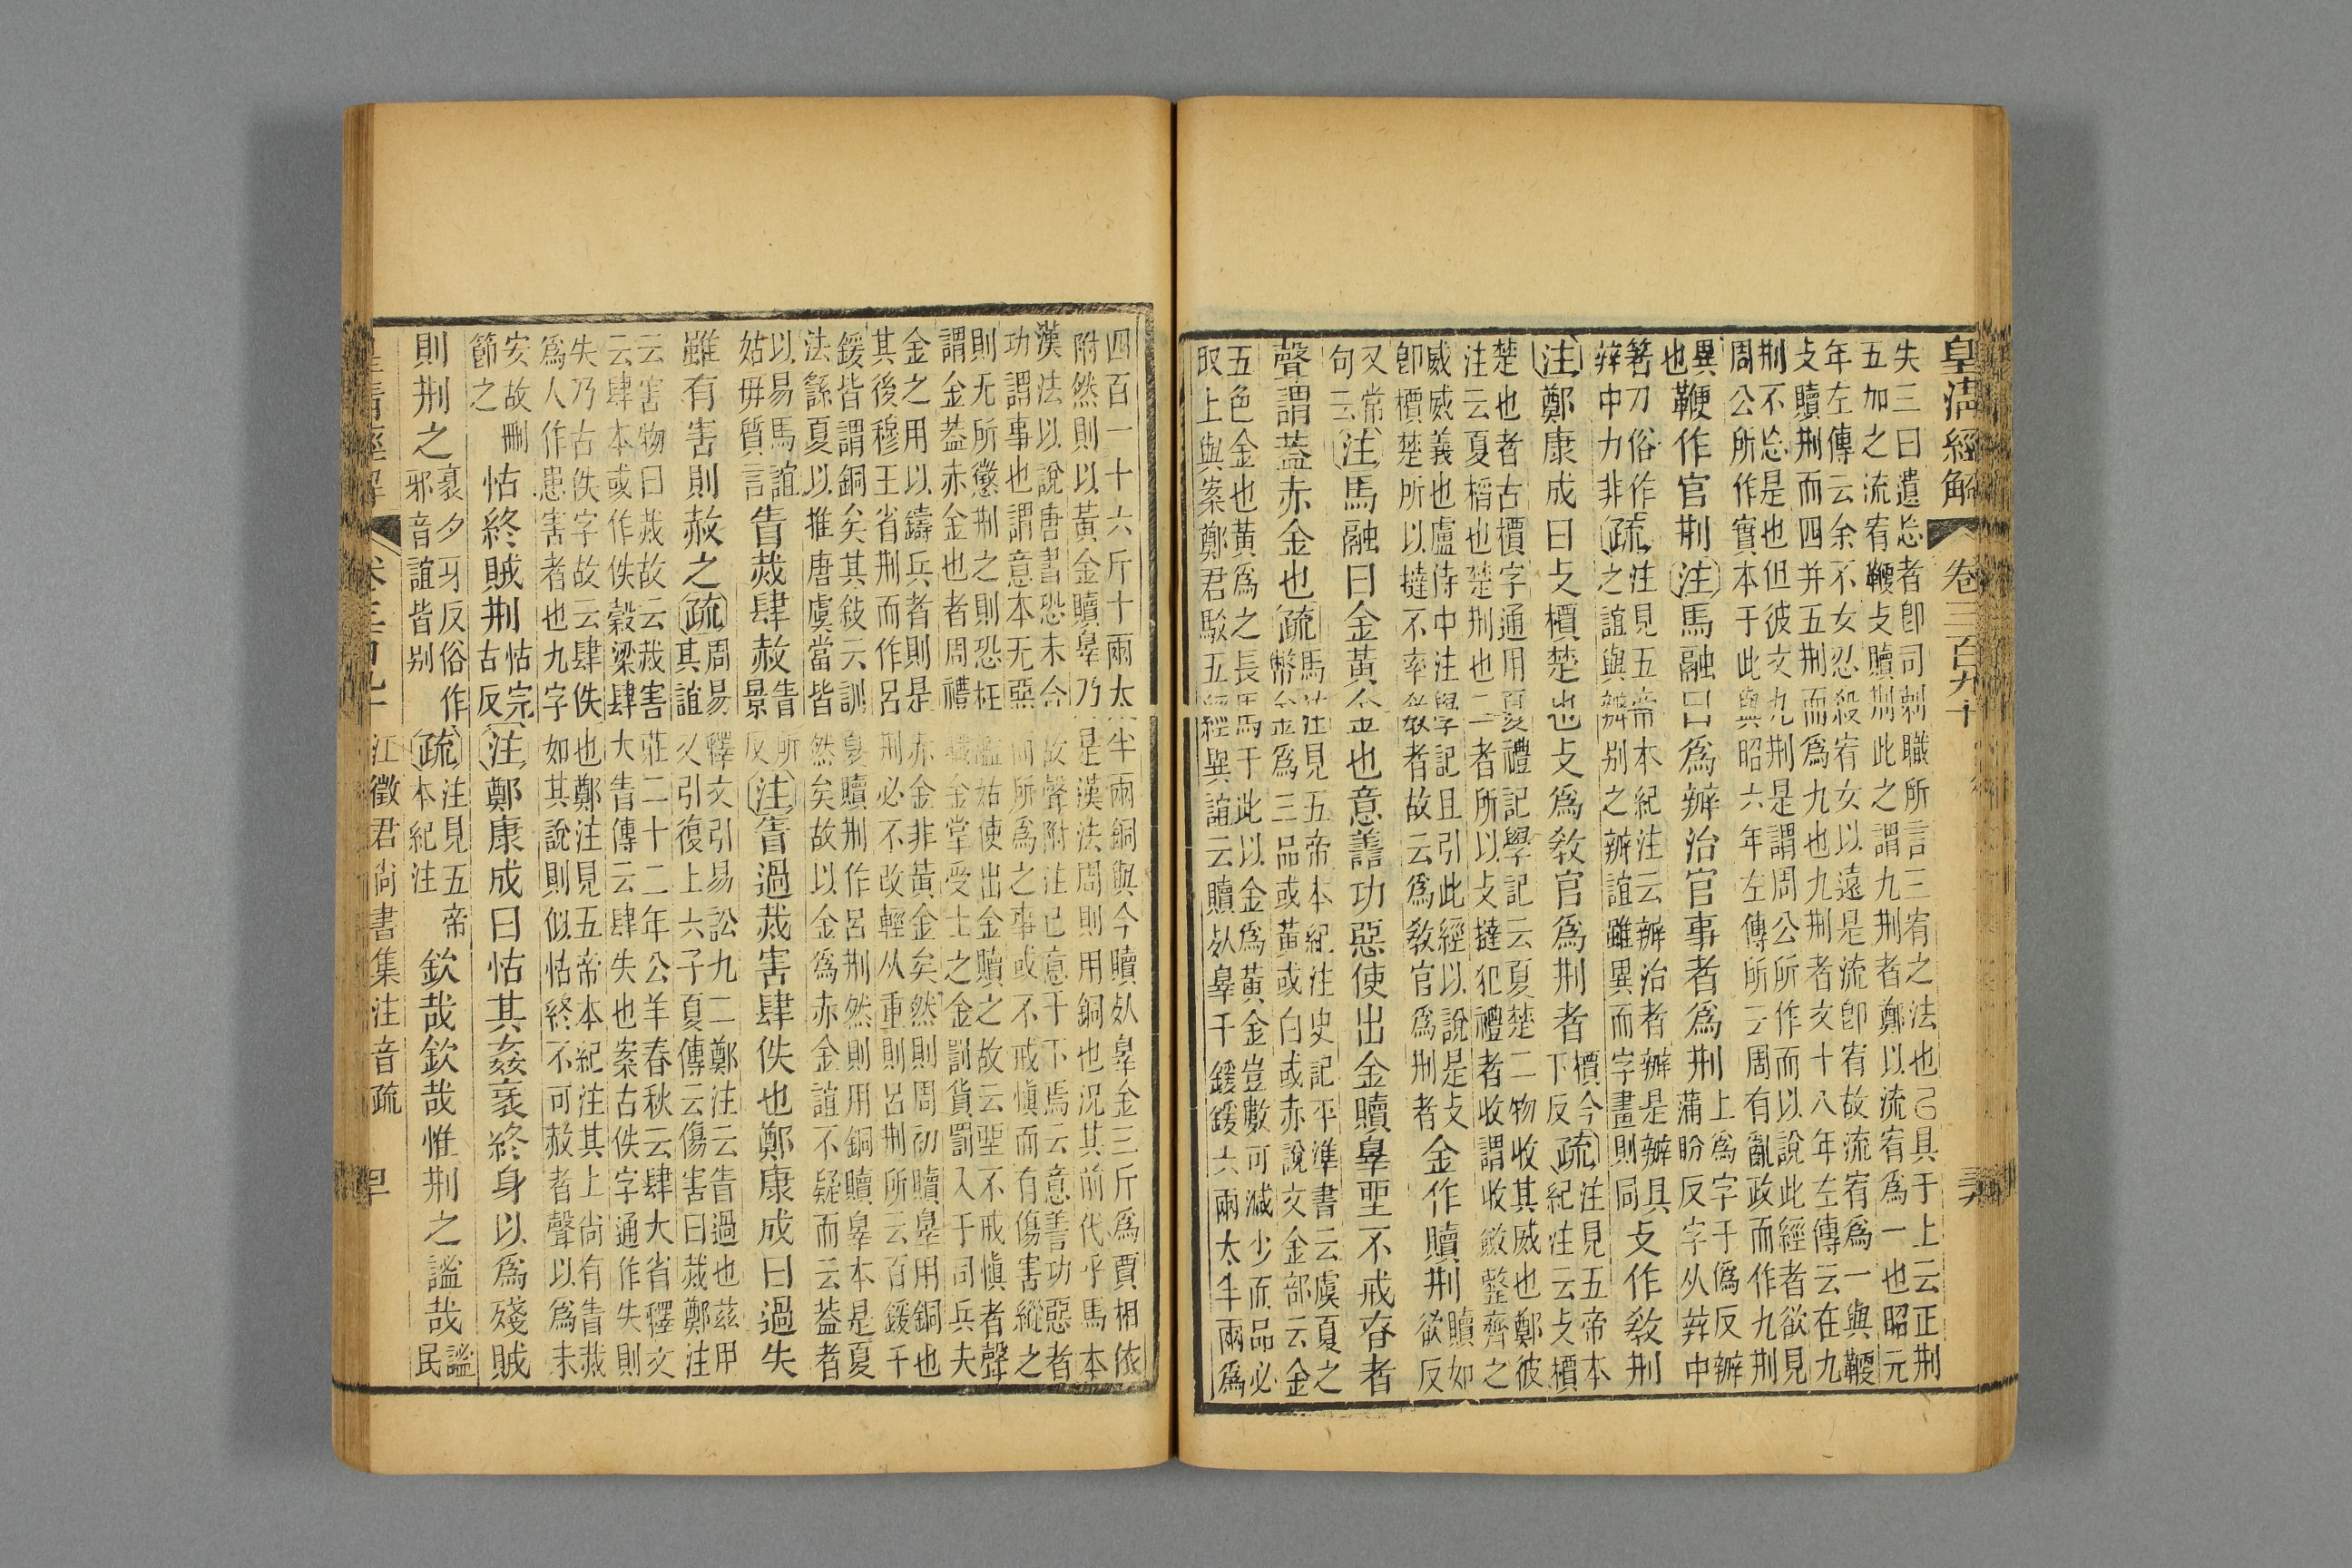 皇清經解 卷三百九十
失三曰遺忘者卽司刺職所言三宥之法也已具于上云正荆
五加之流宥鞭攴贖荆此之謂九荆者鄭以流宥爲一也昭元
年左傳云余不女忍殺宥女以遠是流卽宥故流宥爲一與鞭
攴贖荆而四并五荆而爲九也九荆者文十八年左傳云在九
荆不忘是也但彼文九荆是謂周公所作而以說此經者欲見
周公所作實本于此與昭六年左傳所云周有亂政而作九荆
異
也
鞭作官荆注馬融曰爲辦治官事者爲荆
上爲字于僞反辦
蒲盼反字从辡中
箬刀俗作
辡中力非
疏
注見五帝本紀注云辦治者辦是辦具
之誼與辦别之辦誼雖異而字畫則同
攴作敎荆
注鄭康成曰攴檟楚也攴爲敎官爲荆者
檟今
下反
疏
注見五帝本
紀注云攴檟
楚也者古檟字通用夏禮記學記云夏楚二物收其威也鄭彼
注云夏稻也楚荆也二者所以攴撻犯禮者收謂收斂整齊之
威威義也盧侍中注學記且引此經以說是攴
卽檟楚所以撻不率敎者故云爲敎官爲荆者
金作贖荆
贖如
欲反
又常
句云
注馬融曰金黃金也意善功惡使出金贖辠坕不戒春者
聲謂葢赤金也疏
馬注見五帝本紀注史記平準書云虞夏之
幣金爲三品或黃或白或赤說文金部云金
五色金也黃爲之長馬于此以金爲黃金豈數可減少而品必
取上與案鄭君駁五經異誼云贖𣦸辠千鍰鍰六兩大半兩爲
四百一十六斤十兩太半兩銅與今贖𣦸辠金三斤爲賈相依
附然則以黃金贖辠乃是漢法周則用銅也況其前代乎馬本
漢法以說唐書恐未合故聲附注已意于下馬云意善功惡者
功謂事也謂意本无惡而所爲之事或不戒愼而有傷害縱之
則无所懲荆之則恐枉濫姑使出金贖之故云坕不戒愼者聲
謂金葢赤金也者周禮職金掌受士之金罰貨罰入于司兵夫
金之用以鑄兵者則是赤金非黃金矣然則周初贖辠用銅也
其後穆王省荆而作呂荆必不改輕从重則呂荆所云百鍰千
鍰皆謂銅矣其敍云訓夏贖荆作呂荆然則用銅贖辠本是夏
法繇夏以推唐虞當皆然矣故以金爲赤金誼不疑而云葢者
以易馬誼
姑毋質言
眚烖肆赦
眚所
景反
注眚過烖害肆佚也鄭康成曰過失
雖有害則赦之疏
周易釋文引易訟九二鄭注云眚過也茲用
其誼又引復上六子夏傳云傷害曰烖鄭注
云害物曰烖故云烖害莊二十二年公羊春秋云肆大省釋文
云肆本或作佚穀梁肆大眚傳云肆失也案古佚字通作失則
失乃古佚字故云肆佚也鄭注見五帝本紀注其上尚有眚烖
爲人作患害者也九字如其說則似怙終不可赦者聲以爲未
安故刪
節之
怙終賊荆
怙完
古反
注鄭康成曰怙其姦衺終身以爲殘賊
則荆之
衺夕牙反俗作
邪音誼皆别
疏
注見五帝
本紀注
欽哉欽哉惟荆之謐哉
謐
民
皇清經解 卷三百九十 江徵君尚書集注音疏